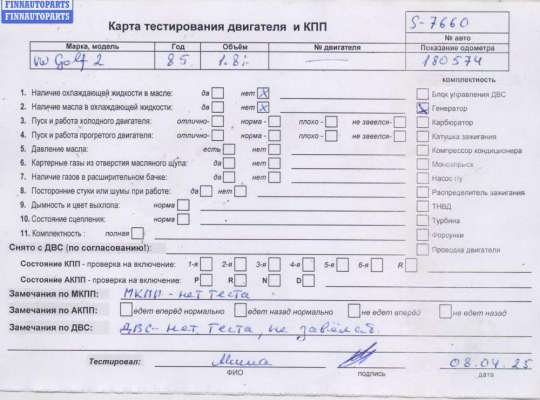 FINNAUTOPARTS
FINNAUTOPARTS
Карта тестирования двигателя и КПП
S-7660
№ авто
Марка, модель Год Объём № двигателя Показание одометра
VW Golf 2 85 1.8i 180574
комплектность
1. Наличие охлаждающей жидкости в масле: да нет x Блок управления ДВС
2. Наличие масла в охлаждающей жидкости: да нет x Генератор
3. Пуск и работа холодного двигателя: отлично- норма - плохо - не завелся- Карбюратор
4. Пуск и работа прогретого двигателя: отлично- норма - плохо - не завелся- Катушка зажигания
5. Давление масла: есть нет Компрессор кондиционера
6. Картерные газы из отверстия масляного щупа: да нет Моновпрыск
7. Наличие газов в расширительном бачке: да нет Насос г\у
8. Посторонние стуки или шумы при работе: да нет Распределитель зажигания
9. Дымность и цвет выхлопа: норма ТНВД
10. Состояние сцепления: норма Турбина
11. Комплектность : полная Форсунки
Снято с ДВС (по согласованию!): Проводка двигателя
Состояние КПП - проверка на включение: 1-я 2-я 3-я 4-я 5-я 6-я R
Состояние АКПП - проверка на включение: P R N D
Замечания по МКПП: МКПП - нет теста
Замечания по АКПП: едет вперёд нормально едет назад нормально не едет вперёд не едет назад
Замечания по ДВС: ДВС - нет теста, не завёлся.
Тестировал: 08.04.25
ФИО подпись дата